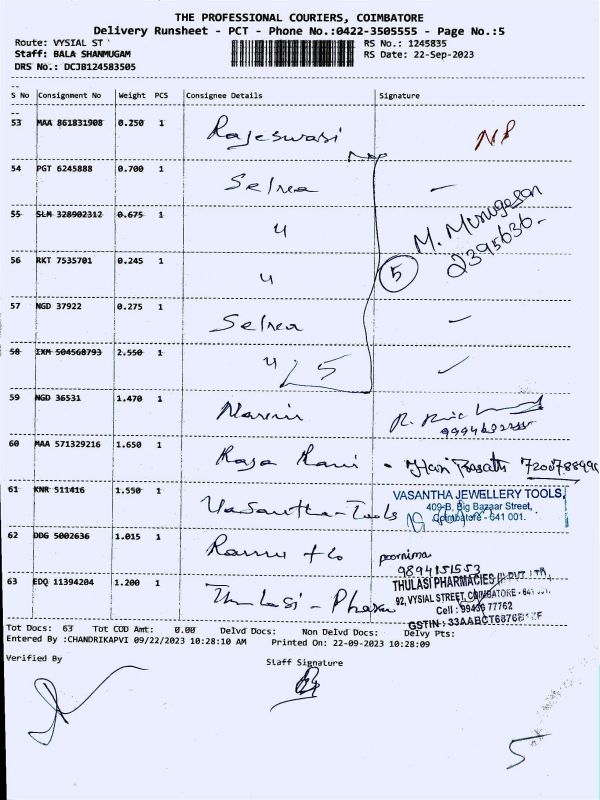 THE PROFESSIONAL COURIERS, COIMBATORE
Delivery Runsheet - PCT - Phone No.:0422-3505555 - Page No.:5
Route: VYSIAL ST
RS No.: 1245835
Staff: BALA SHANMUGAM
RS Date: 22-Sep-2023
DRS No.: DCJB124583505
S No Consignment No Weight PCS Consignee Details Signature
53 MAA 861831908 0.250 1 Rajeswari NP
54 PGT 6245888 0.700 1 Selva
55 SLM 328902312 0.675 1 M. Murugesan
2395636
56 RKT 7535701 0.245 1 5
57 NGD 37922 0.275 1 Selva
58 IXM 504568793 2.550 1 5
59 NGD 36531 1.470 1
60 MAA 571329216 1.650 1 Raja Rani - Hari Prasath
61 KNR 511416 1.550 1 Vasantha-Tools
VASANTHA JEWELLERY TOOLS,
409-B, Big Bazaar Street,
Coimbatore - 641 001.
62 DDG 5002636 1.015 1 Ramu + Co poornima
9894151553
63 EDQ 11394204 1.200 1 Thulasi - Pharma
THULASI PHARMACIES
92, VYSIAL STREET, COIMBATORE -
Cell : 99436 77762
GSTIN :
Tot Docs: 63 Tot COD Amt: 0.00 Delvd Docs: Non Delvd Docs: Delvy Pts:
Entered By :CHANDRIKAPVI 09/22/2023 10:28:10 AM Printed On: 22-09-2023 10:28:09
Verified By
Staff Signature
5